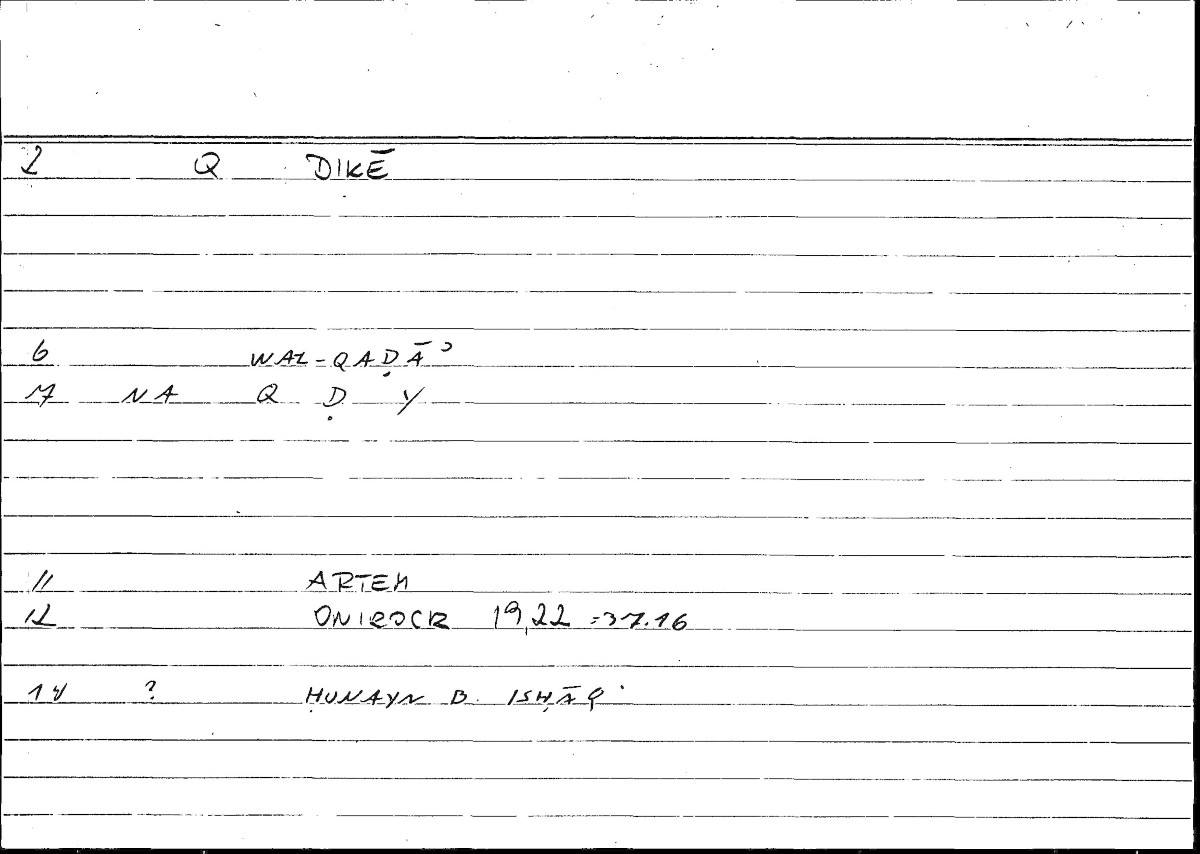 2 Q DIKĒ
6 WAL-QAḌĀʾ
17 NA Q Ḍ Y
11 ARTEM
12 ONIROCR 19,22 =37.16
14 ? ḤUNAYN B. ISḤĀQ